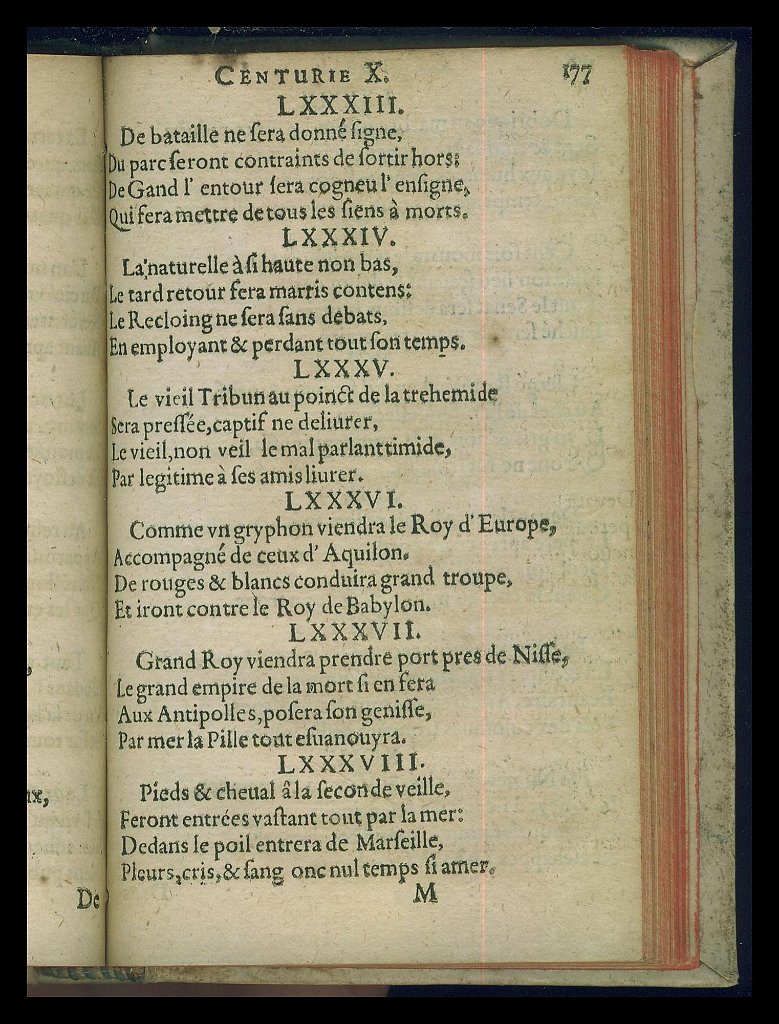 CENTURIE X. 177
LXXXIII.
De bataille ne ſera donné ſigne,
Du parc ſeront contraints de ſortir hors:
De Gand l' entour ſera cogneu l' enſigne,
Qui fera mettre de tous les ſiens à morts.
LXXXIV.
La naturelle à ſi haute non bas,
Le tard retour fera marris contens:
Le Recloing ne ſera ſans debats,
En employant & perdant tout ſon temps.
LXXXV.
Le vieil Tribun au poinct de la trehemide
Sera preſſée, captif ne deliurer,
Le vieil, non veil le mal parlant timide,
Par legitime à ſes amis liurer.
LXXXVI.
Comme vn gryphon viendra le Roy d' Europe,
Accompagné de ceux d' Aquilon,
De rouges & blancs conduira grand troupe,
Et iront contre le Roy de Babylon.
LXXXVII.
Grand Roy viendra prendre port pres de Niſſe,
Le grand empire de la mort ſi en fera
Aux Antipolles, poſera ſon geniſſe,
Par mer la Pille tout eſuanouyra.
LXXXVIII.
Pieds & cheual â la ſeconde veille,
Feront entrées vaſtant tout par la mer:
Dedans le poil entrera de Marſeille,
Pleurs, cris, & ſang onc nul temps ſi amer.
M
De